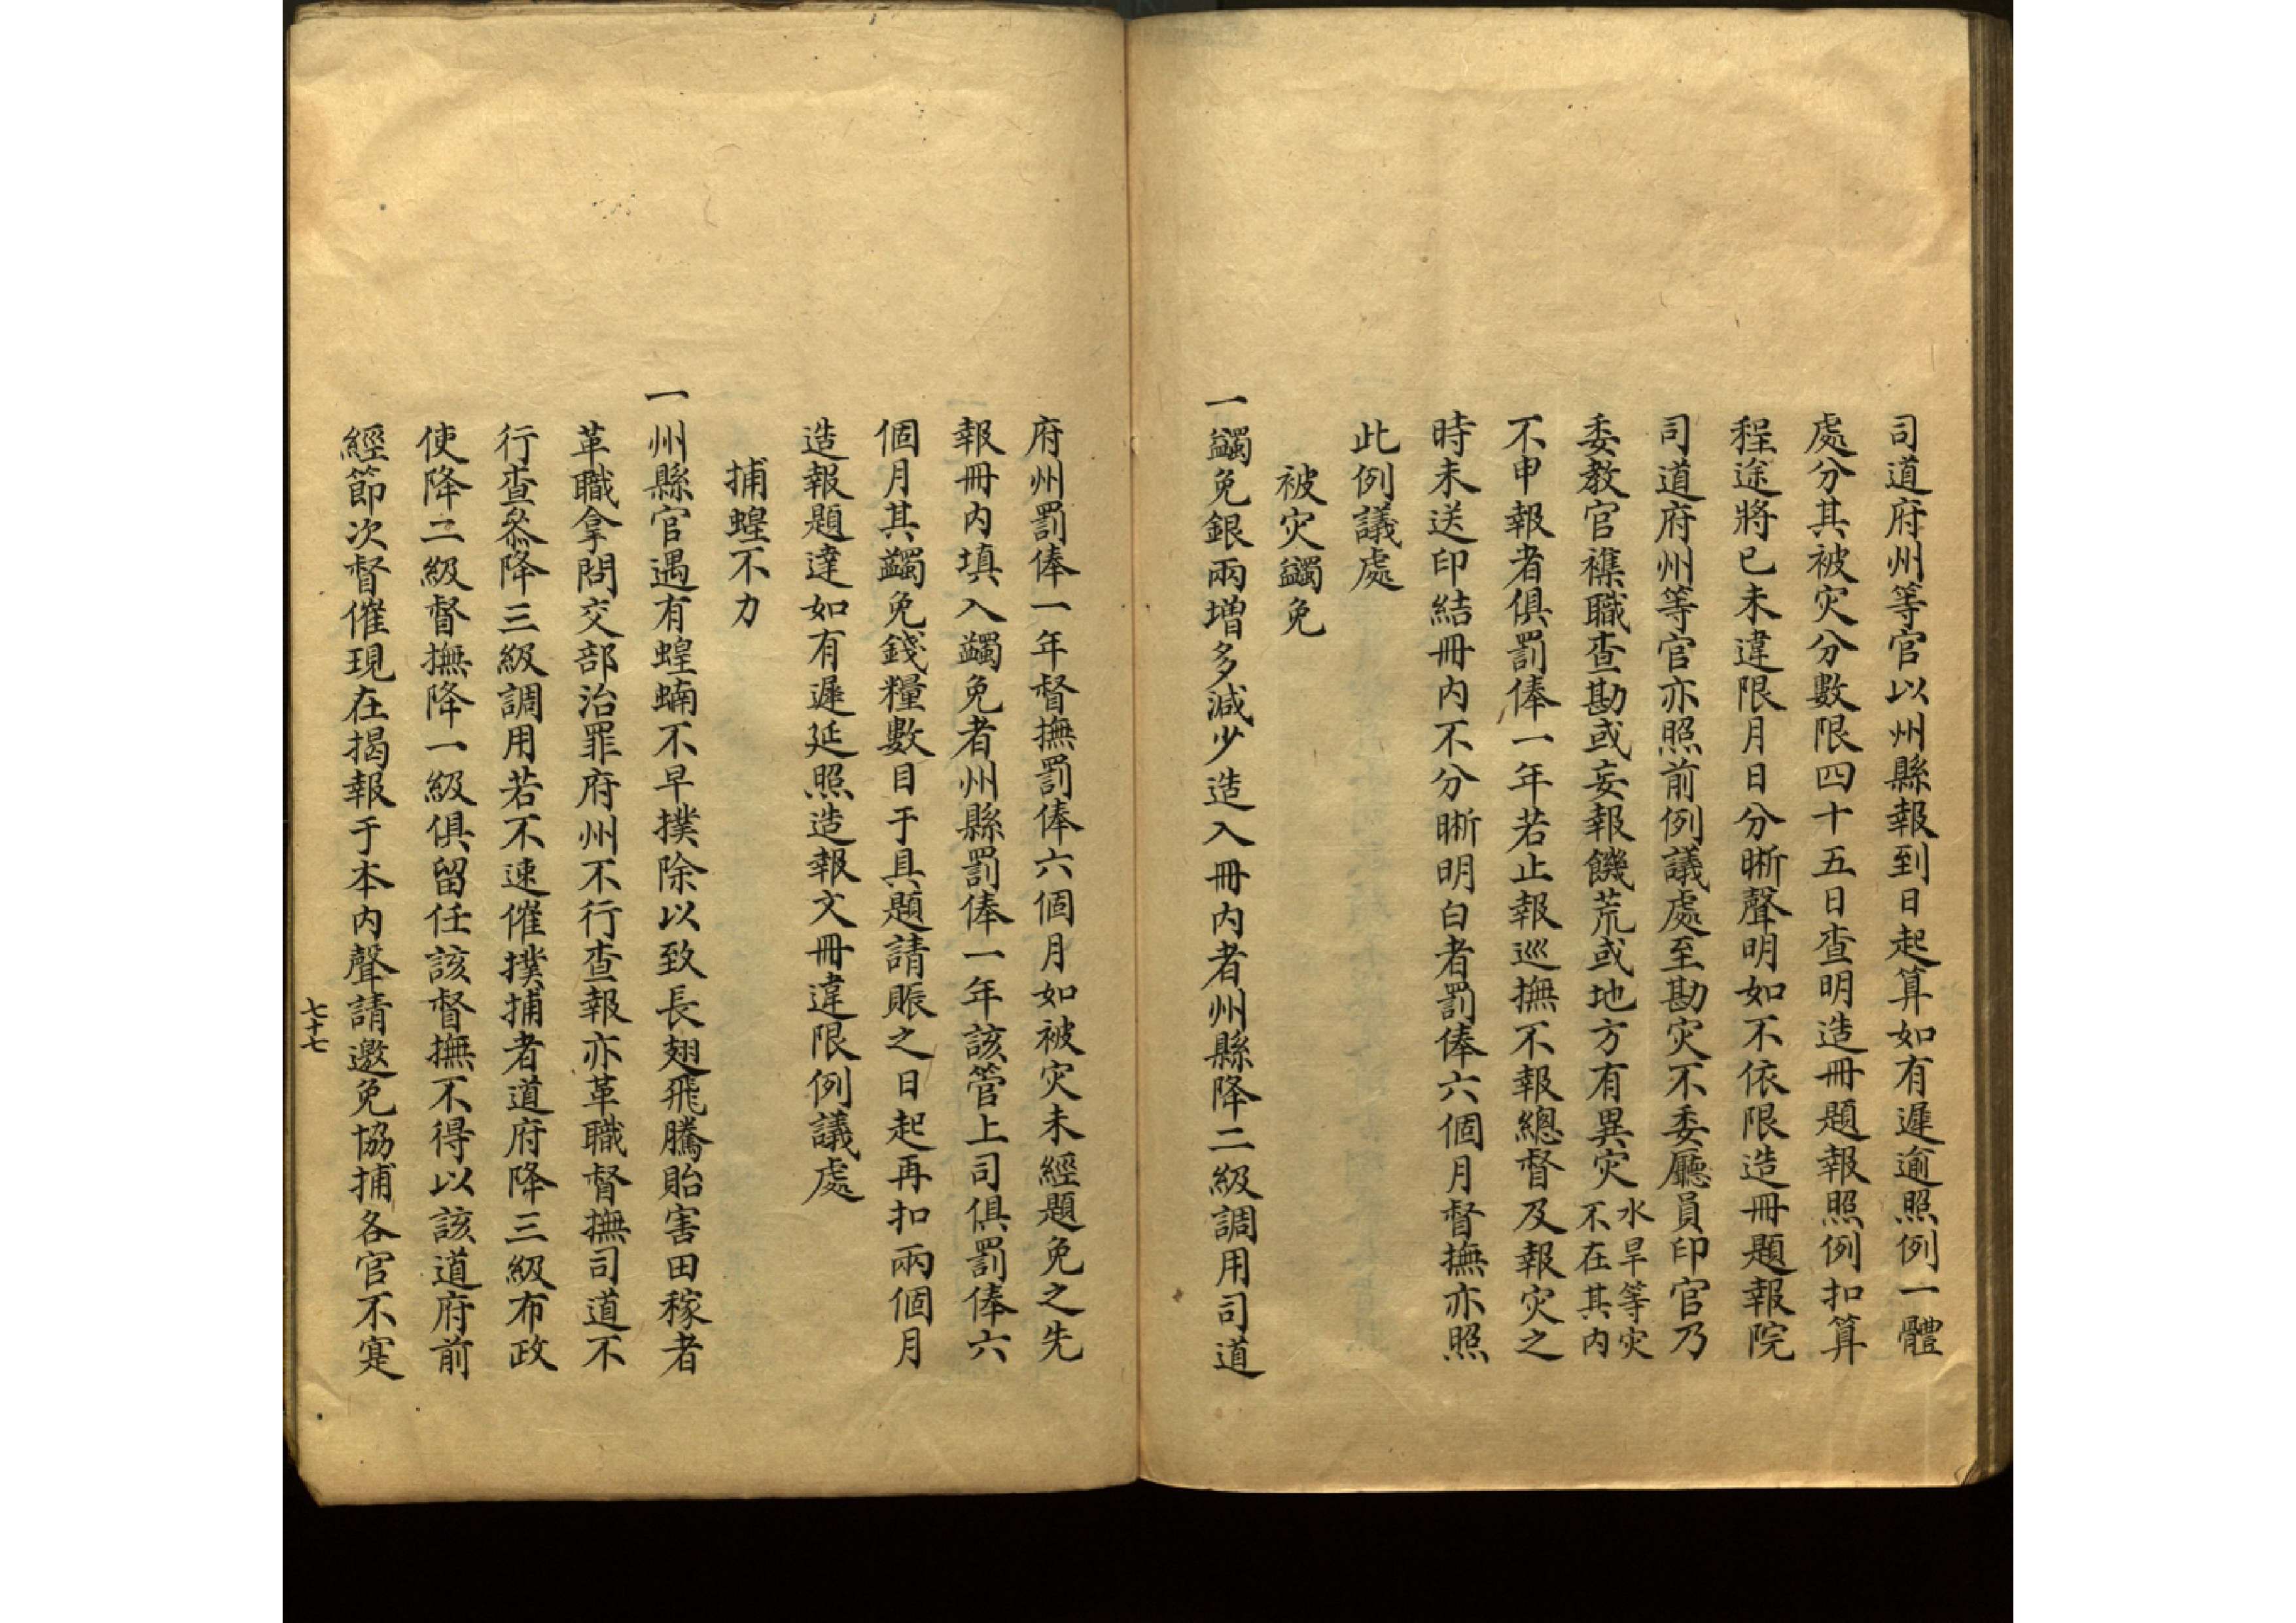 司道府州等官以州縣報到日起算如有遲逾照例一體
處分其被灾分數限四十五日查明造冊題報照例扣算
程途將已未違限月日分晰聲明如不依限造冊題報院
司道府州等官亦照前例議處至勘灾不委廳員印官乃
委教官襍職查勘或妄報饑荒或地方有異灾水旱等灾不在其内
不申報者俱罰俸一年若止報巡撫不報總督及報灾之
時未送印結冊内不分晰明白者罰俸六個月督撫亦照
此例議處
被灾蠲免
一蠲免銀兩增多減少造入冊内者州縣降二級調用司道
府州罰俸一年督撫罰俸六個月如被灾未經題免之先
報冊内填入蠲免者州縣罰俸一年該管上司俱罰俸六
個月其蠲免錢糧數目于具題請賑之日起再扣兩個月
造報題達如有遲延照造報文冊違限例議處
捕蝗不力
一州縣官遇有蝗蝻不早撲除以致長翅飛騰貽害田稼者
革職拿問交部治罪府州不行查報亦革職督撫司道不
行查叅降三級調用若不速催撲捕者道府降三級布政
使降二級督撫降一級俱留任該督撫不得以該道府前
經節次督催現在揭報于本内聲請邀免協捕各官不寔
七十七